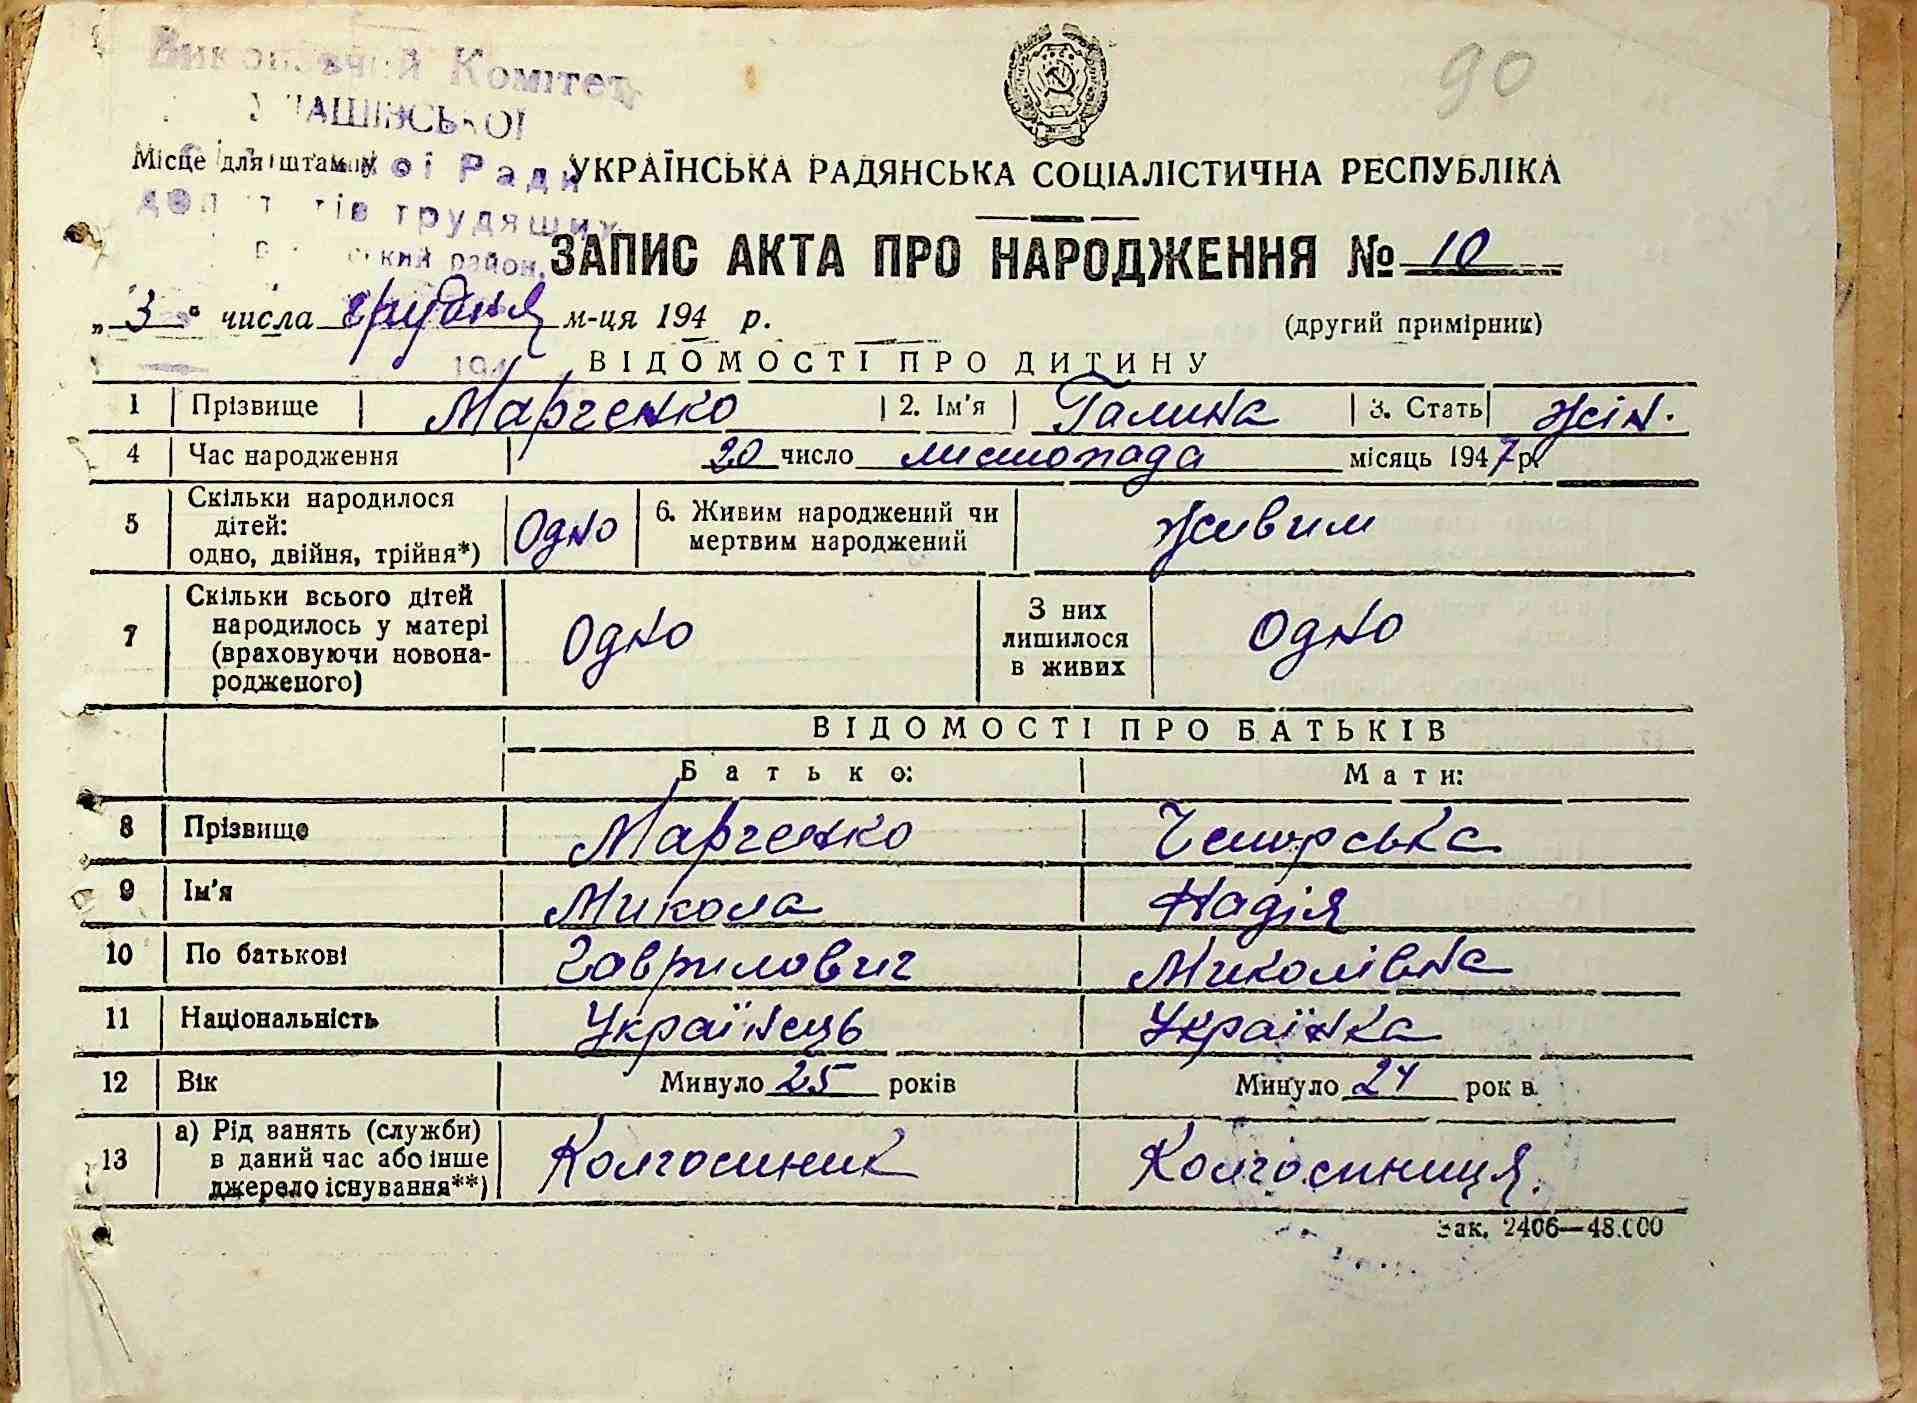 90
Виконавчий Комітет
Місце для штампу Ради
УКРАЇНСЬКА РАДЯНСЬКА СОЦІАЛІСТИЧНА РЕСПУБЛІКА
трудящих
район,
ЗАПИС АКТА ПРО НАРОДЖЕННЯ № 10
„3“ числа грудня м-ця 194 р.
(другий примірник)
ВІДОМОСТІ ПРО ДИТИНУ
1 Прізвище Марченко 2. Ім'я Галина 3. Стать жін.
4 Час народження 20 число листопада місяць 1947 р.
5 Скільки народилося дітей: одно, двійня, трійня*) Одно 6. Живим народжений чи мертвим народжений Живим
7 Скільки всього дітей народилось у матері (враховуючи новонародженого) Одно З них лишилося в живих Одно
ВІДОМОСТІ ПРО БАТЬКІВ
Батько: Мати:
8 Прізвище Марченко
9 Ім'я Микола Надія
10 По батькові Гаврилович Миколівна
11 Національність Українець Українка
12 Вік Минуло 25 років Минуло 24 рок в
13 а) Рід занять (служби) в даний час або інше джерело існування**) Колгоспник Колгоспниця.
Зак. 2406—48.000